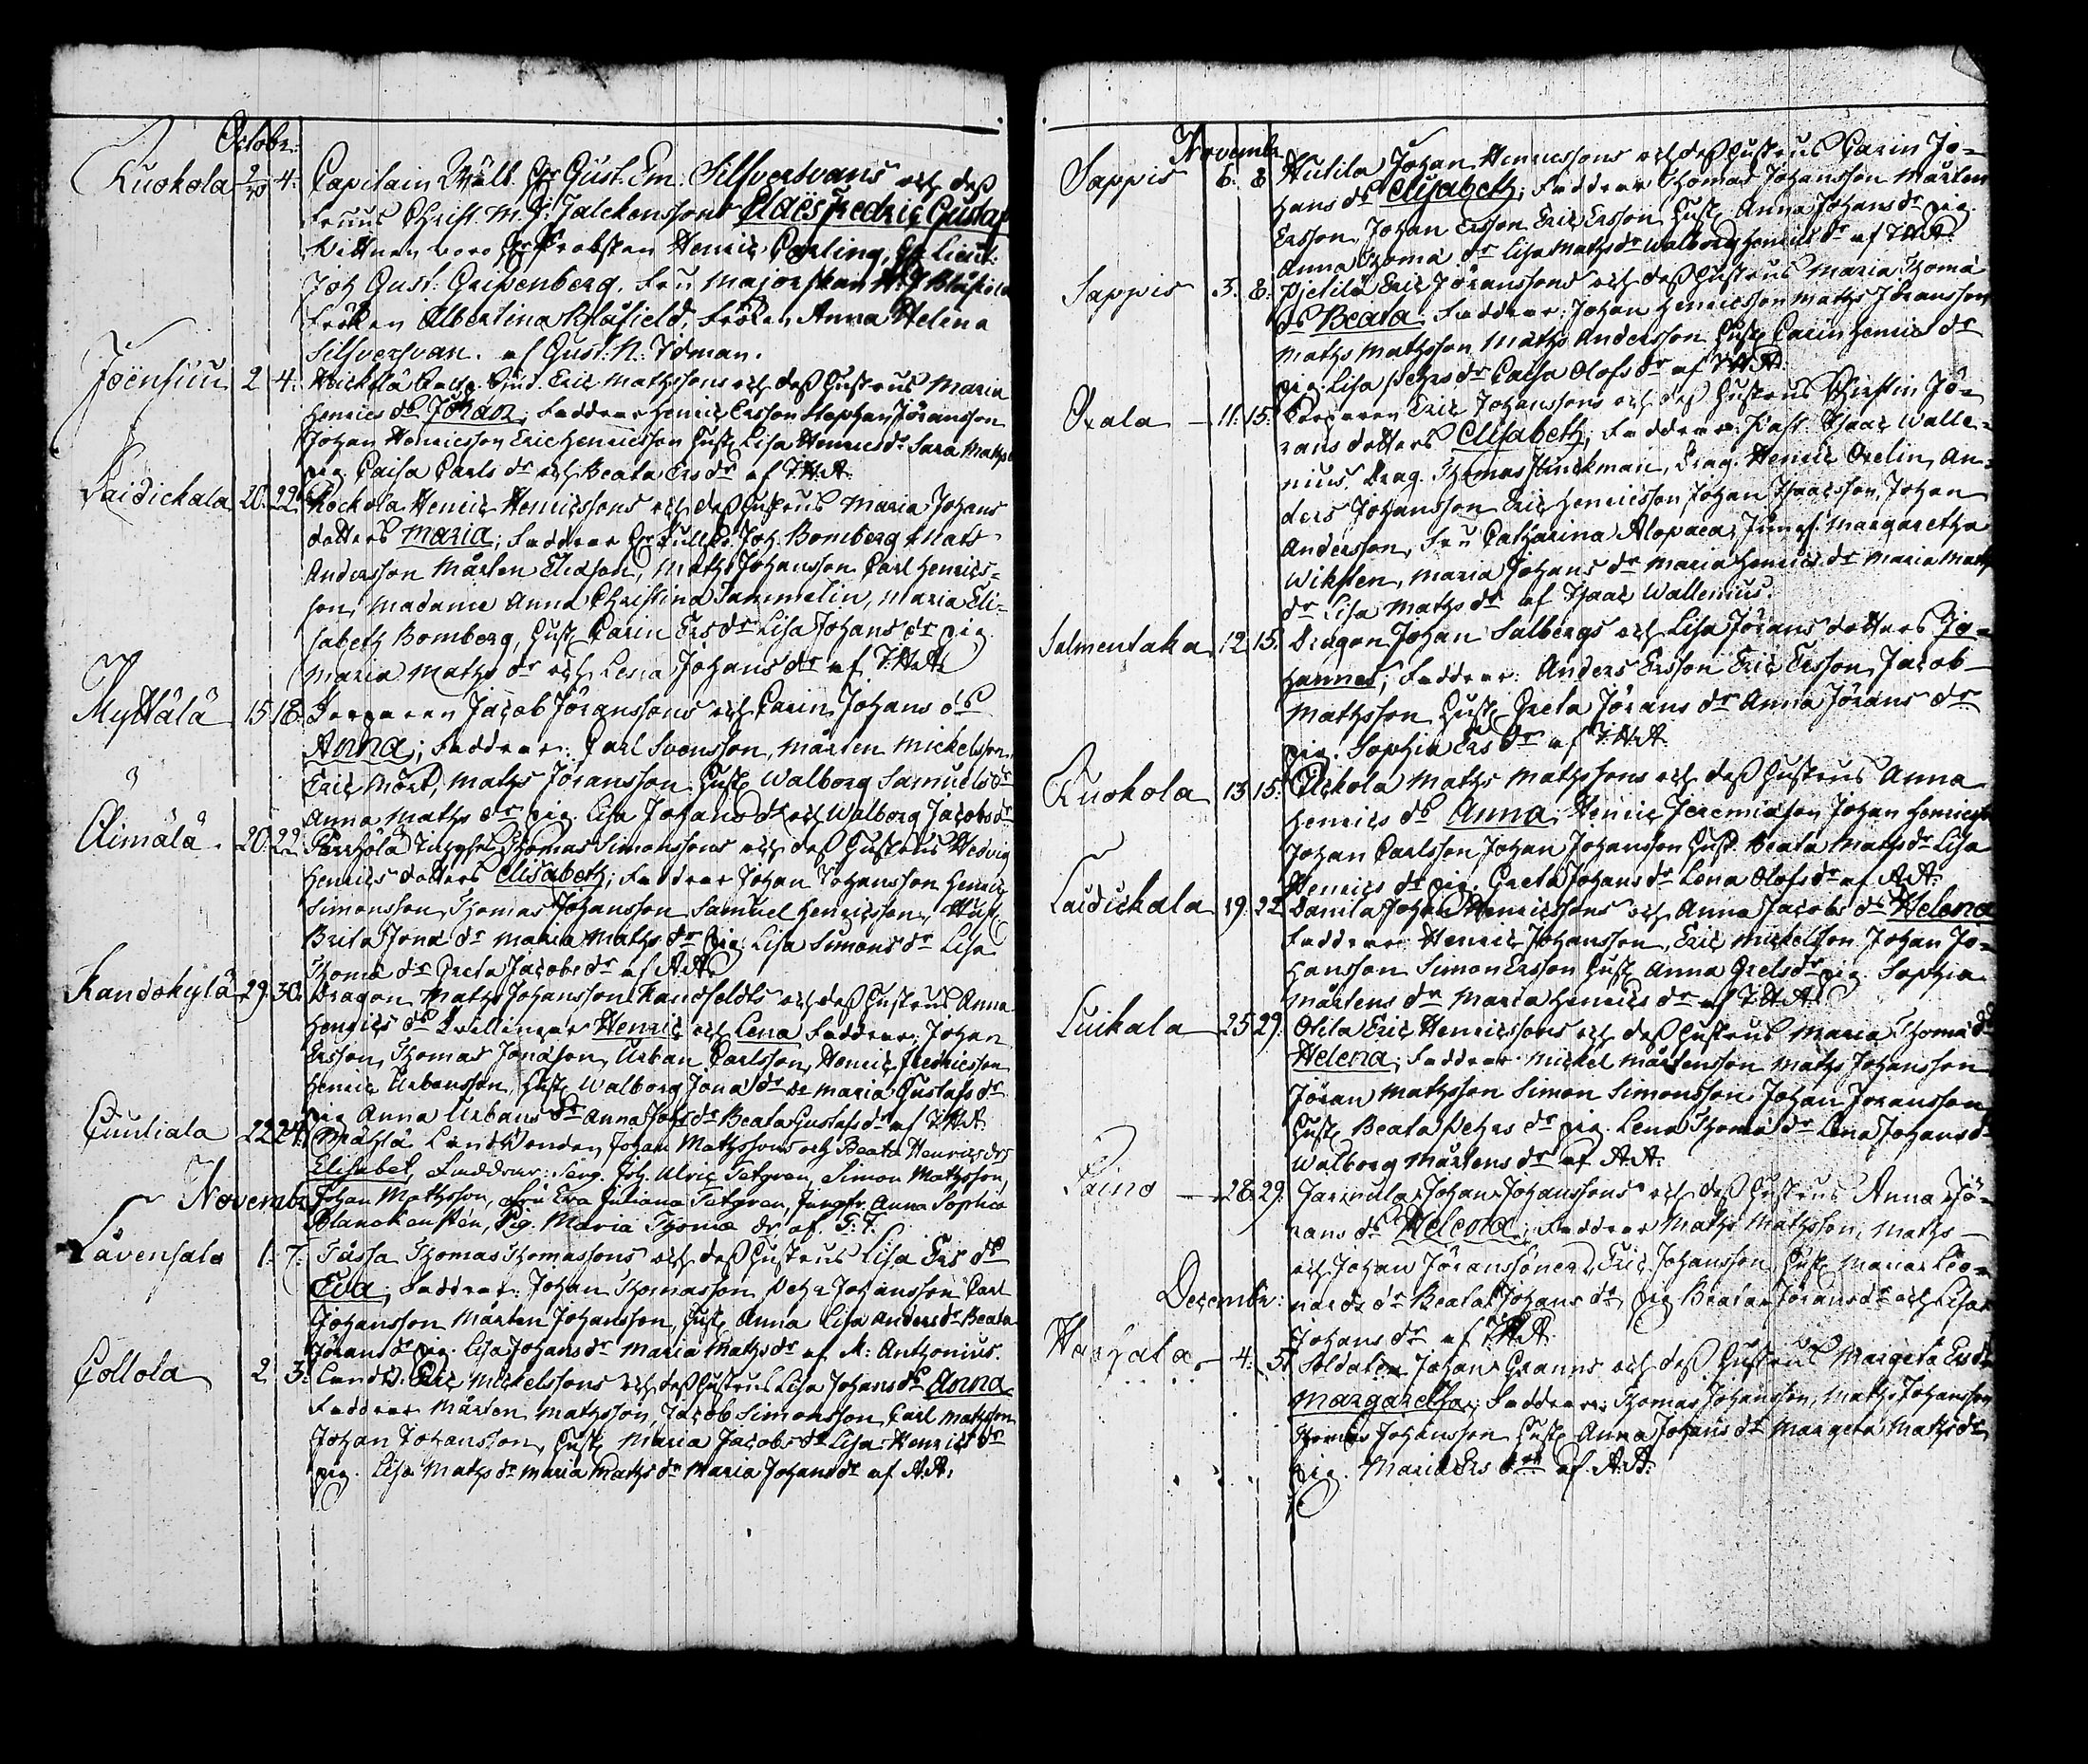 Octobr:
Kuokola 2/10 4. Capitain Wälb. Hr Gust. Em. Silfversvans och deß
Fruus Christ. M. J. Jalckenssons Claës Fredric Gustaf
Wittnen voro Hr Probsten Henric Carling, Hr Lieut:
Joh Gust: Gripenberg. Fru Majorskan Blåfield
Fröken Albertina Blåfield, Fröken Anna Helena
Silfversvan. af Gust: N: Idman.
Joensuu 2 4. Eric Mathssons och deß hustrus Maria
Henrics ds Johan; Faddrar Henric Ersson Stephan Jöransson
Johan Henricsson Eric Henricsson Hust. Lisa Henrics dr Sara Maths
pig. Caisa Carls dr och Beata Ers dr af J.H.A.
Laidickala 20. 22. Kockola Henric Henricssons och deß hustrus Maria Johans
dotters Maria; Faddrar Joh. Bomberg Mats
Andersson Mårten Eliasson, Maths Johansson Carl Henrics-
son, Madame Anna Christina Tammelin, Maria Eli-
sabeth Bomberg, Hust. Carin Ers dr Lisa Johans dr pig.
Maria Maths dr och Lena Johans dr af J.H.A.
Myttälä 15 18. Jacob Jöranssons och Carin Johans ds
Anna; Faddrar: Carl Svensson, Mårten Mickelsson,
Eric Mört, Maths Jöransson Hust. Walborg Samuels dr
Anna Maths dr pig. Lisa Johans dr och Walborg Jacobs dr
Alimälä. 20. 22. Perhölä Thomas Simonssons och deß hustrus Hedvig
Henrics dotters Elisabeth; Faddrar Johan Johansson Henric
Simonsson, Thomas Johansson Samuel Henricsson, Hust.
Brita Jona dr Maria Maths dr pig. Lisa Simons dr Lisa
Thoma dr Greta Jacobs dr af A.A.
Kandokylä 29. 30. Dragon Maths Johansson Randfeldts och deß hustrus Anna
Henrics ds Tvillingar Henric och Lena Faddrar: Johan
Ersson, Thomas Jonasson, Urban Carlsson, Henric Fredricsson
Henric Urbansson, Hust. Walborg Jona dr Maria Gustafs dr
pig Anna Urbans dr Anna Johs dr Beata Gustafs dr af J.H.A.
Cuuliala 22 24. Mäkylä Landbonden Johan Mathssons och Beata Henrics drs
Elisabet, Faddrar: Serg. Joh. Ulric Tetgren, Simon Mathsson,
Novembr. Johan Mathsson, Fru Eva Juliana Tetgren, Jungfr. Anna Sophia
Blanckensten, Pig. Maria Thomæ dr, af. F. T.
Lävensalo 1. 7. Tässa Thomas Thomassons och deß hustrus Lisa Ers ds
Eva; Faddrar: Johan Thomasson Pehr Johansson Carl
Johansson Mårten Johansson, Hust. Anna Lisa Anders dr Beata
Jörans dr pig. Lisa Johans dr Maria Maths dr af M: Anthonius.
Collola 2 3. Landb. Eric Mickelssons och deß hustrus Lisa Johans ds Anna
Faddrar Mårten Mathsson, Jacob Simonsson Carl Mathsson
Johan Johansson, Hust. Maria Jacobs dr Lisa Henrics dr
pig. Lisa Maths dr Maria Maths dr Maria Johans dr af A.A.
Novembr.
Sappis 6. 8 Hutila Johan Henricssons och deß hustrus Carin Jo-
hans ds Elisabeth; Faddrar Thomas Johansson Mårten
Ersson, Johan Ersson Eric Ersson Hust. Anna Johans dr pig.
Anna Thoma dr Lisa Maths dr Walborg Henrics dr af J.H.A.
Sappis 3. 8. Pjetilä Eric Jöranssons och deß hustrus Maria Thoma
ds Beata. Faddrar: Johan Henricsson Maths Jöransson
Maths Mathsson Maths Andersson Hust. Carin Henrics dr
pig. Lisa Pehrs dr Caisa Olofs dr af J.H.A.
Oxala 11. 15. Eric Johanssons och deß hustrus Christin Jö-
rans dotters Elisabeth; Faddrar: Isaac Walle-
nius. Drag. Thomas Stinckman, Drag. Henric Oxelin, An-
ders Johansson Eric Henricsson, Johan Isaacsson, Johan
Andersson, Fru Catharina Alopaea, Jumgf. Margaretha
Wiksten, Maria Johans dr Maria Henrics dr Maria Maths
dr Lisa Maths dr af Isaac Wallenius.
Salmentaka 12 15. Dragon Johan Salbergs och Lisa Jörans dotters Jo-
hannes; Faddrar: Anders Ersson Eric Ersson, Jacob
Mathsson Hust. Greta Jörans dr Anna Jörans dr
pig. Sophia Ers dr af J.H.A.
Kuokola 13 15. Maths Mathssons och deß hustrus Anna
Henrics ds Anna; Henric Jeremiasson Johan Henricsson
Johan Carlsson Johan Johansson Hust. Beata Maths dr Lisa
Henrics dr pig. Greta Johans dr Lena Olofs dr af A.A.
Laidickala 19. 22 Danila Johan Henricssons och Anna Jacobs ds Helena
Faddrar: Henric Johansson, Eric Mickelsson Johan Jo-
hansson Simon Ersson Hust. Anna Grels dr pig. Sophia
Mårtens dr Maria Henrics dr af J.H.A.
Luikala 25 29. Otila Eric Henricssons och deß hustrus Maria Thoma ds
Helena; Faddrar Mickel Mårtensson Maths Johansson
Jöran Mathsson Simon Simonsson Johan Jöransson
Hust. Beata Pehrs dr pig. Lena Thoma dr Lena Johans dr
Walborg Mårtens dr af A.A.
Paino 28. 29. Jarmula Johan Johanssons och deß hustrus Anna Jö-
rans ds Helena; Faddrar Maths Mathsson, Maths
och Johan Jöranssöner, Eric Johansson Hust. Maria Leo-
Decembr: nards dr Beata Johans dr pig Beata Jörans dr och Lisa
Johans dr af J.H.A.
Harhala 4. 5. Soldaten Johan Granns och deß hustrus Margeta Ers ds
Margaretha; Faddrar: Thomas Johansson, Maths Johansson
Thomas Johansson Hust. Anna Johans dr Margeta Maths dr
pig. Maria Ers dr af A.A.